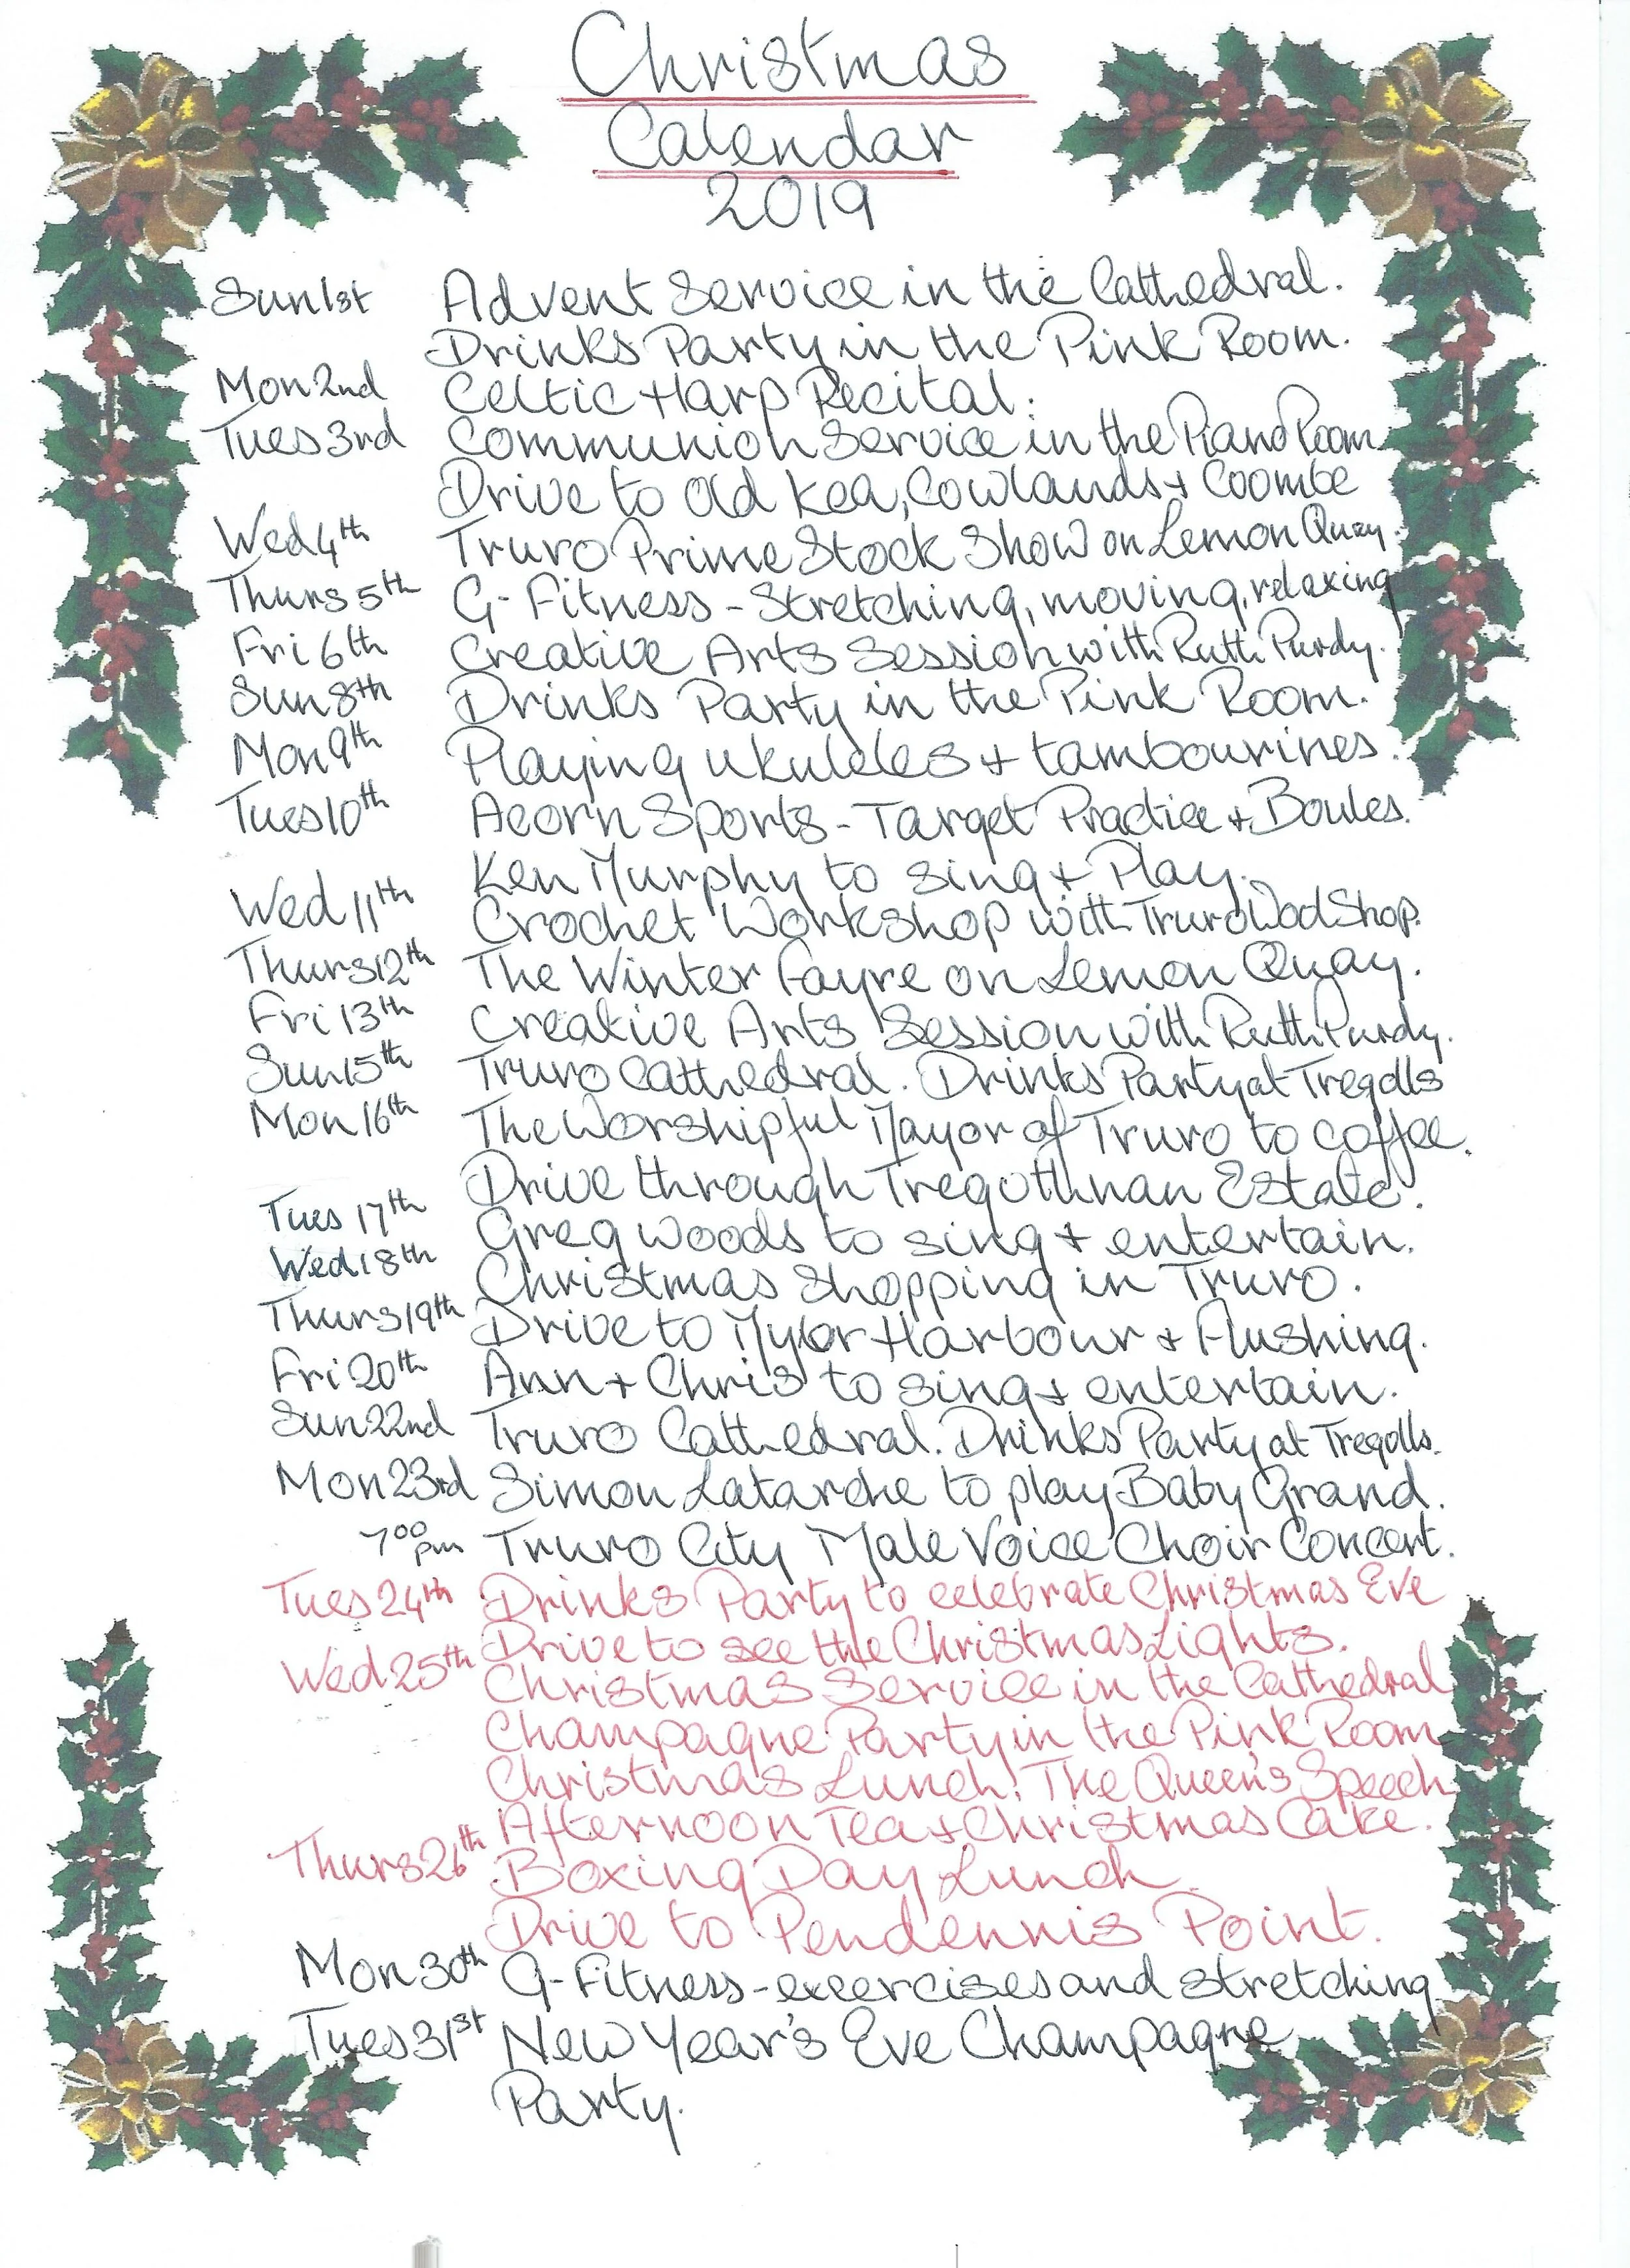 Christmas
Calendar
2019
Sun 1st Advent Service in the Cathedral.
Drinks Party in the Pink Room.
Mon 2nd Celtic Harp Recital.
Tues 3rd Communion Service in the Piano Room
Drive to Old Kea, Cowlands + Coombe
Wed 4th Truro Prime Stock Show on Lemon Quay.
Thurs 5th G-Fitness - Stretching, moving, relaxing
Fri 6th Creative Arts Session with Ruth Purdy.
Sun 8th Drinks Party in the Pink Room.
Mon 9th Playing ukuleles + tambourines.
Tues 10th Acorn Sports - Target Practice + Boules.
Ken Murphy to sing + Play.
Wed 11th Crochet Workshop with Truro Wool Shop.
Thurs 12th The Winter Fayre on Lemon Quay.
Fri 13th Creative Arts Session with Ruth Purdy.
Sun 15th Truro Cathedral. Drinks Party at Tregolls
Mon 16th The Worshipful Mayor of Truro to coffee.
Drive through Tregothnan Estate.
Tues 17th Greg Woods to sing + entertain.
Wed 18th Christmas Shopping in Truro.
Thurs 19th Drive to Mylor Harbour + Flushing.
Fri 20th Ann + Chris to sing + entertain.
Sun 22nd Truro Cathedral. Drinks Party at Tregolls.
Mon 23rd Simon Latarche to play Baby Grand.
7 00 pm Truro City Male Voice Choir Concert.
Tues 24th Drinks Party to celebrate Christmas Eve
Drive to see the Christmas Lights.
Wed 25th Christmas Service in the Cathedral
Champagne Party in the Pink Room
Christmas Lunch. The Queen's Speech
Afternoon Tea + Christmas Cake.
Thurs 26th Boxing Day Lunch.
Drive to Pendennis Point.
Mon 30th G-Fitness - exercises and stretching
Tues 31st New Year's Eve Champagne
Party.